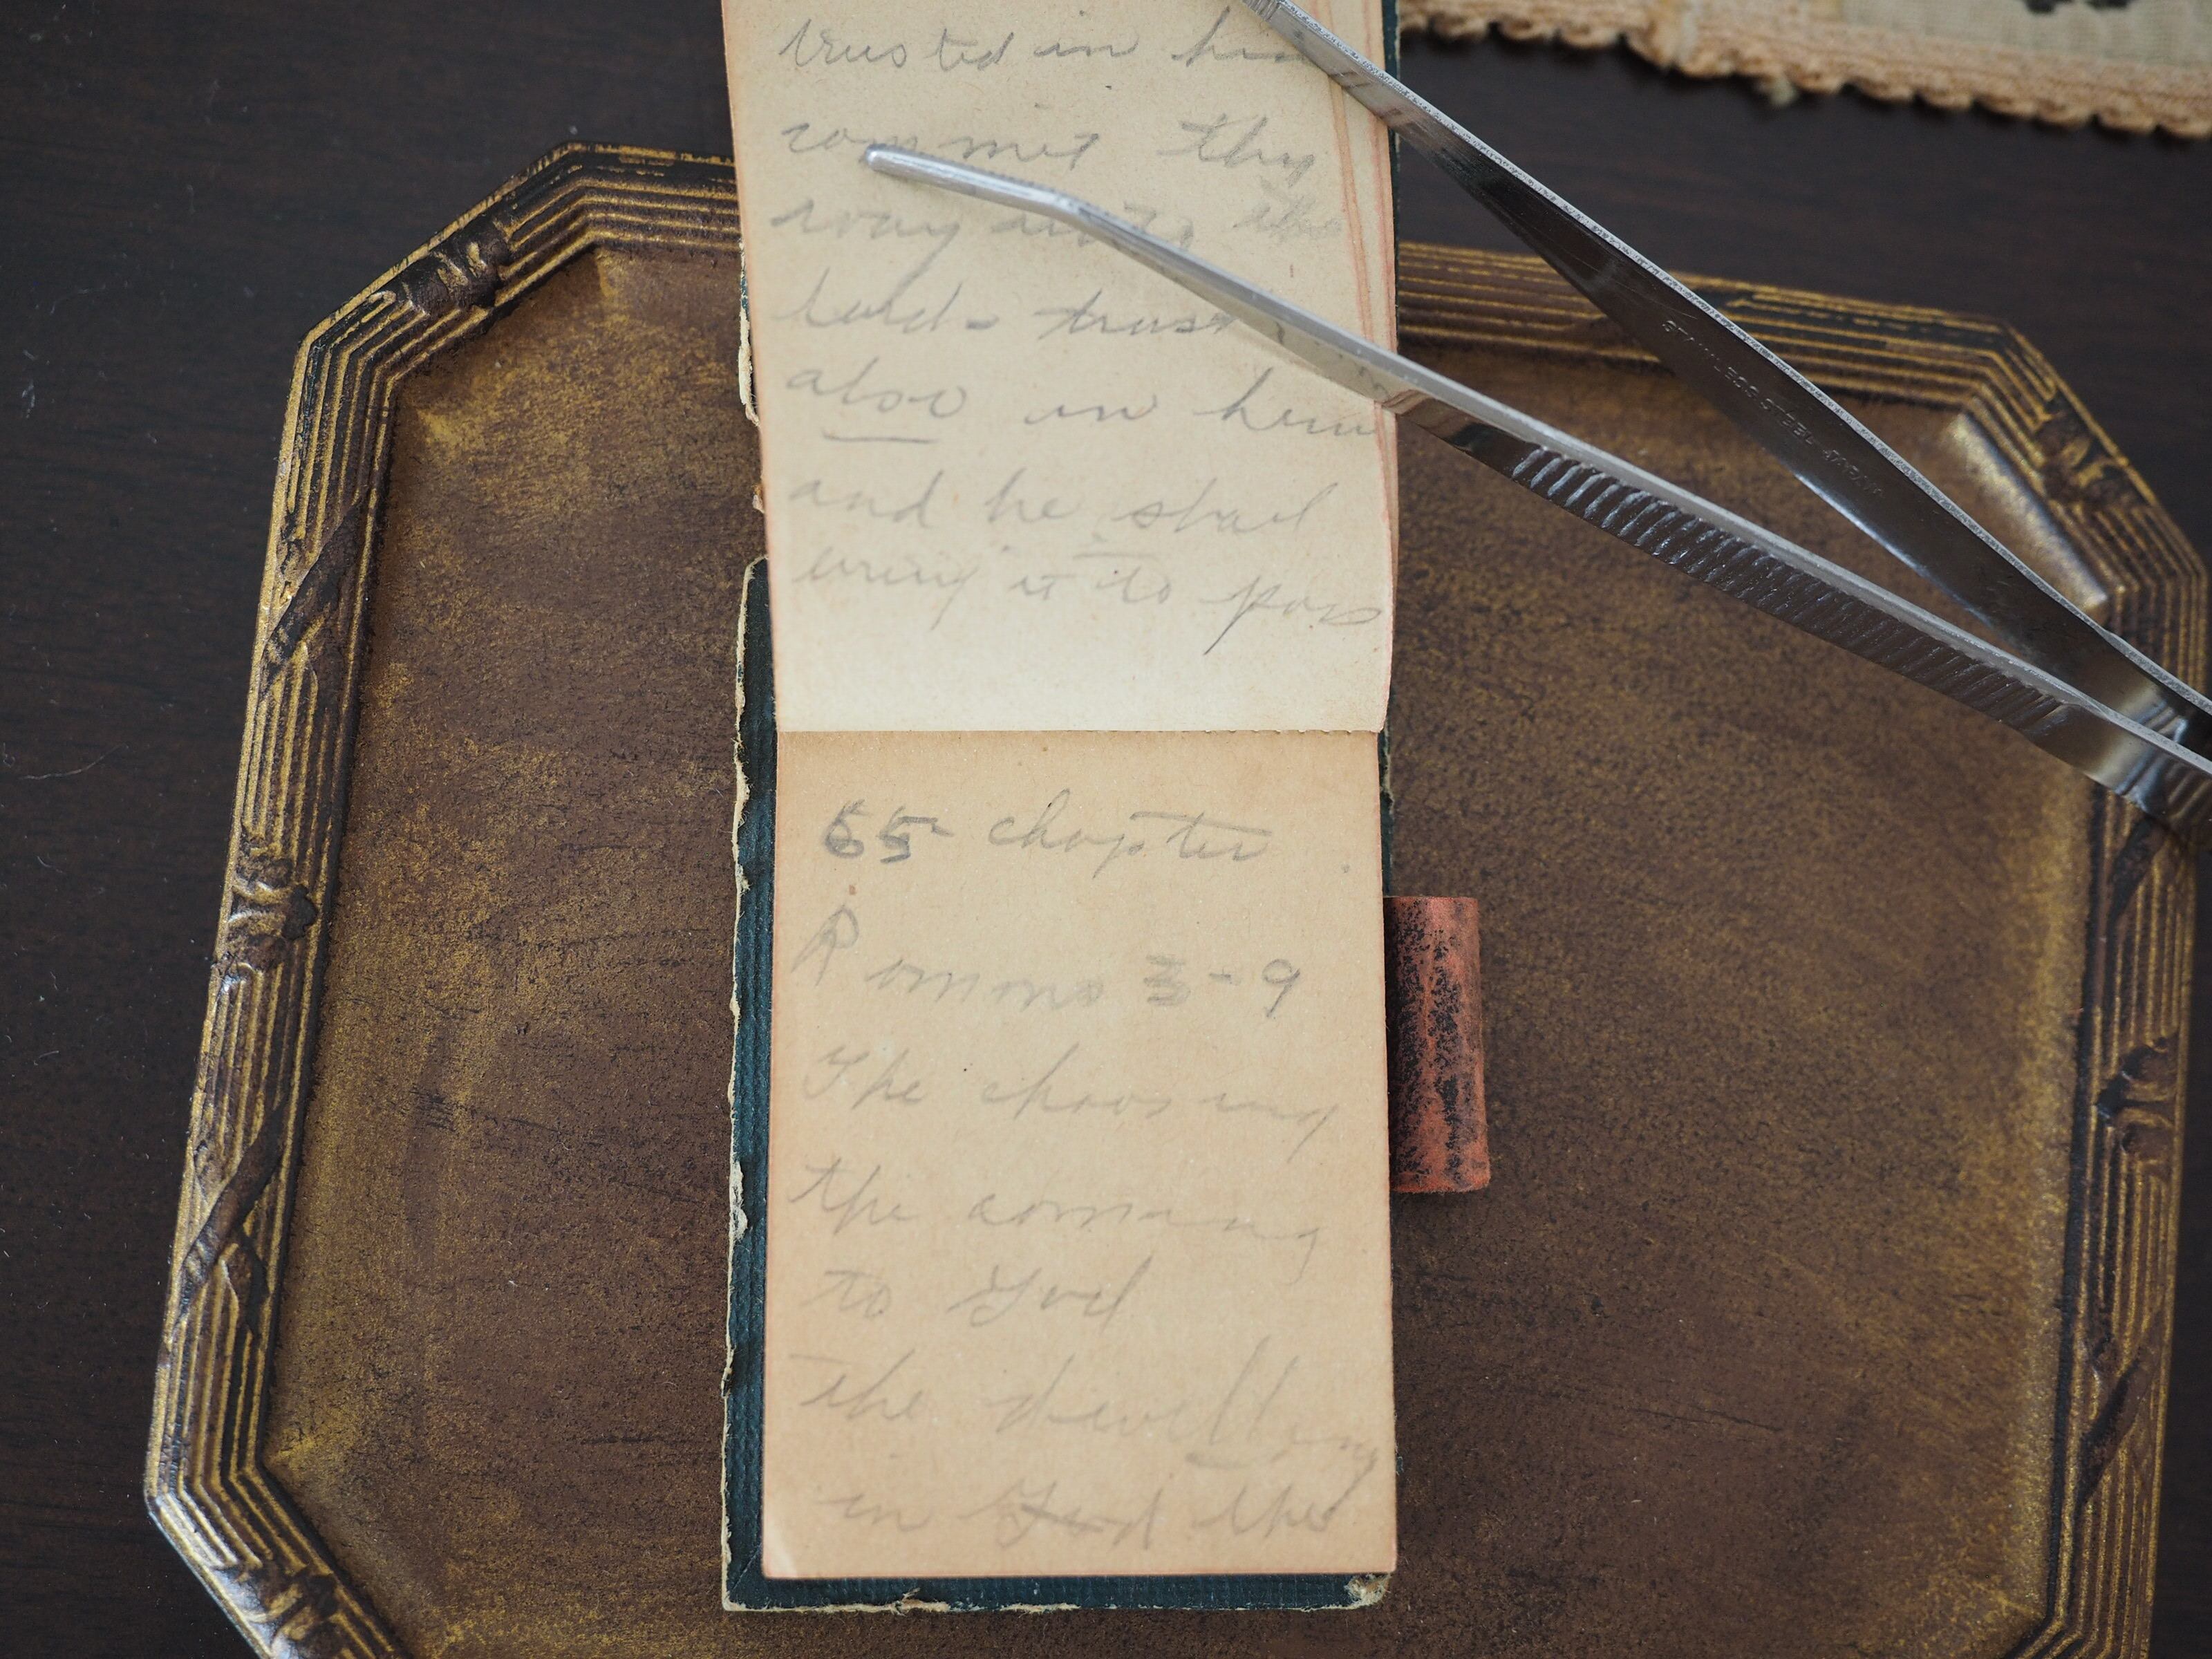 trusted in him
commit thy
way unto the
Lord - trust
also in him
and he shall
bring it to pass
65 chapter
Romans 3-9
The choosing
the coming
to God
the dwelling
in God the
STAINLESS STEEL JAPAN